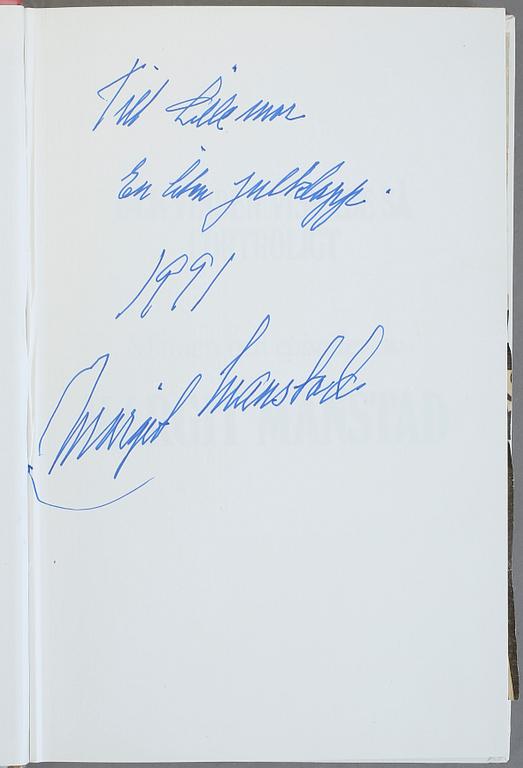 Till Lillemor
En liten julklapp.
1991
Margit Manstad